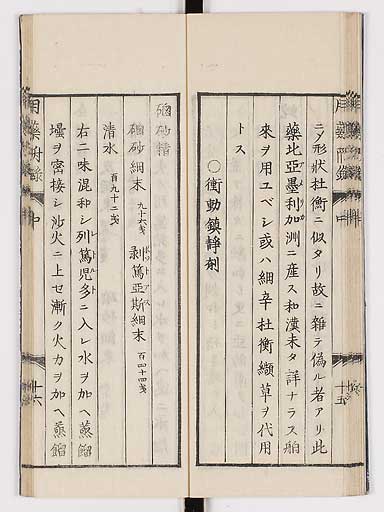 ニノ形狀杜衡ニ似タリ故ニ雜テ僞ル者アリ此
藥比亞墨利加洲ニ産ス和漢未タ詳ナラス舶
來ヲ用ユベシ或ハ細辛杜衡纈草ヲ代用
トス
○衝動鎭靜劑
十五
磠砂精
磠砂細末 九十六戔 剥篤亞斯細末 百四十四戔
清水 百九十二戔
右二味混和シ列篤兒多ニ入レ水ヲ加ヘ蒸餾
壜ヲ密接シ沙火ニ上セ漸ク火力ヲ加ヘ蒸餾
用藥附錄 中 十六